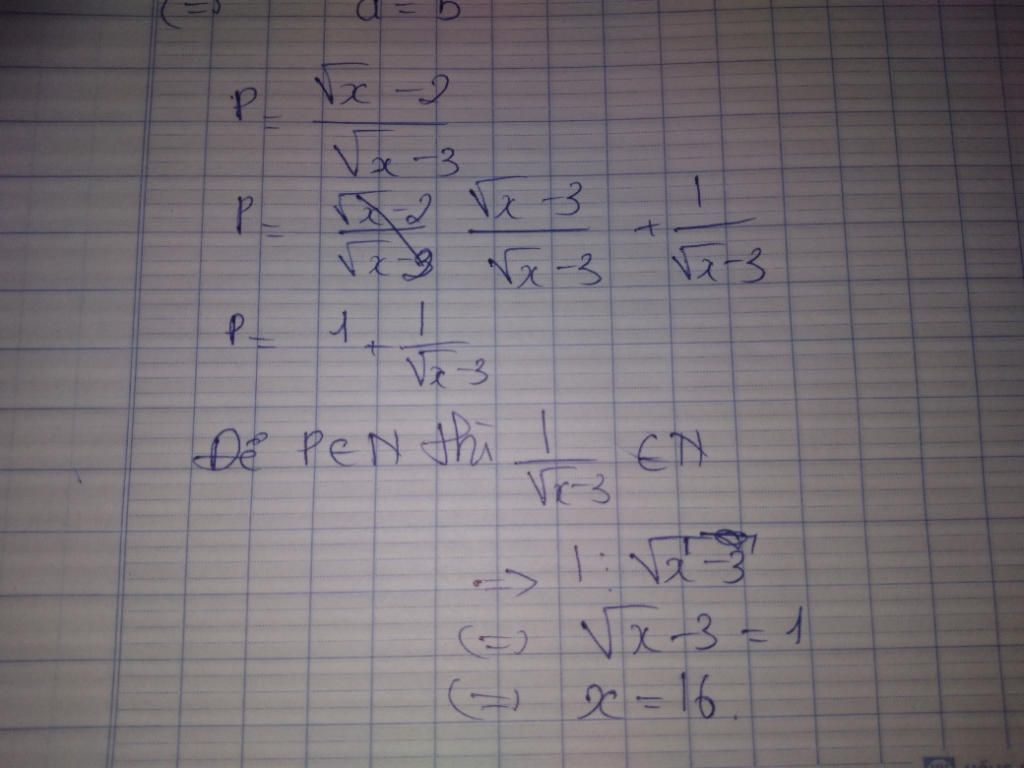 (=) a = b
P = \frac{\sqrt{x} - 2}{\sqrt{x} - 3}
P = \frac{\sqrt{x} - 3}{\sqrt{x} - 3} + \frac{1}{\sqrt{x} - 3}
P = 1 + \frac{1}{\sqrt{x} - 3}
Để P ∈ N thì \frac{1}{\sqrt{x} - 3} ∈ N
=> 1 ⋮ \sqrt{x} - 3
(=) \sqrt{x} - 3 = 1
(=) x = 16.